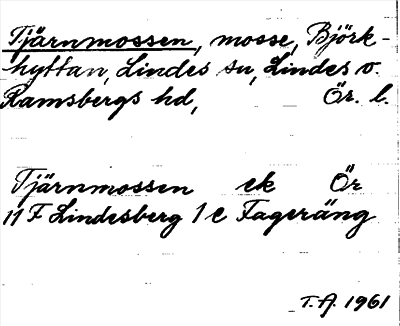 Tjärnmossen, mosse, Björk-
hyttan, Lindes sn, Lindes o.
Ramsbergs hd, Ör. l.
Tjärnmossen ek Ör
11 F Lindesberg 1 c Fageräng
T.A. 1961